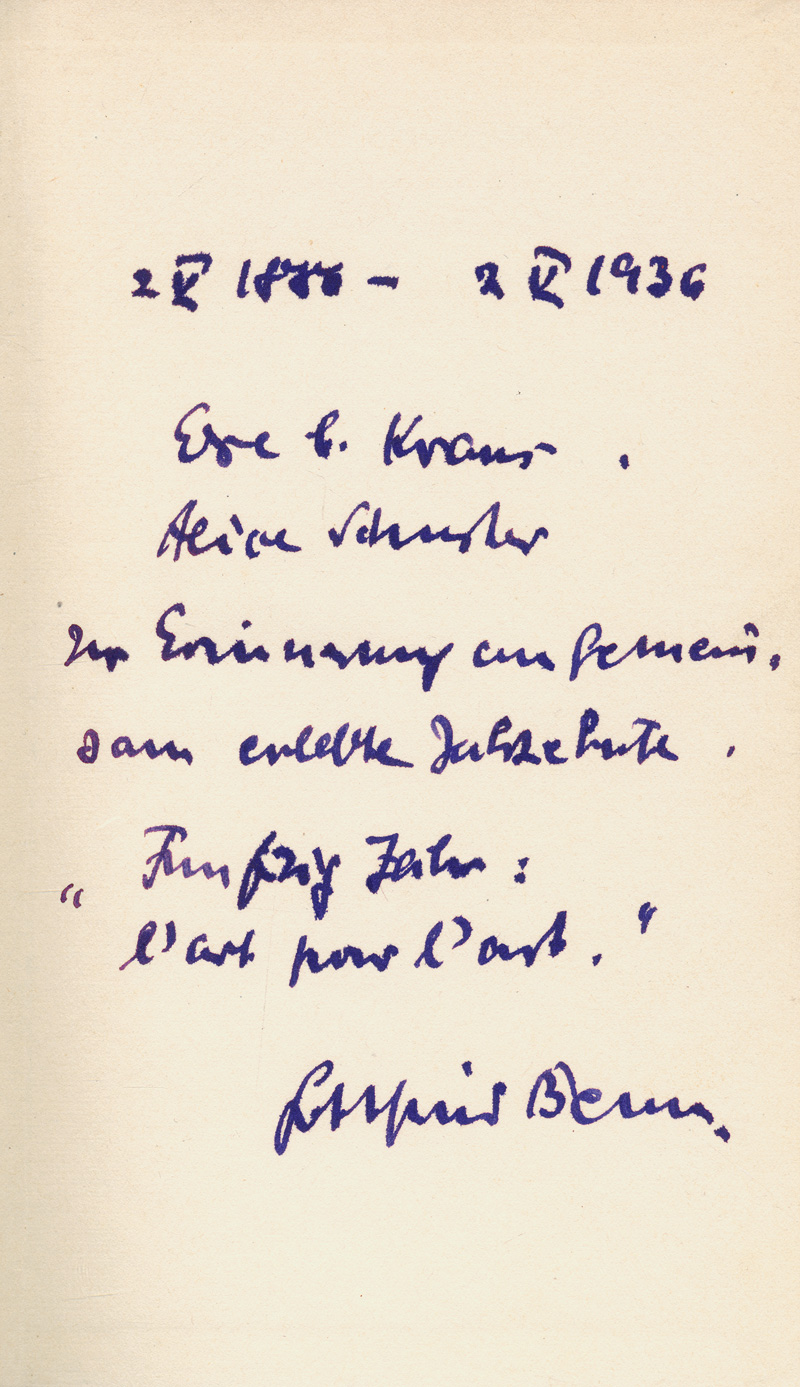 2 V 1886 – 2 V 1936
Else C. Kraus.
Alice Schuster
zur Erinnerung an gemein-
sam erlebte Jahrzehnte.
„Fünfzig Jahr:
l'art pour l'art."
Gottfried Benn.